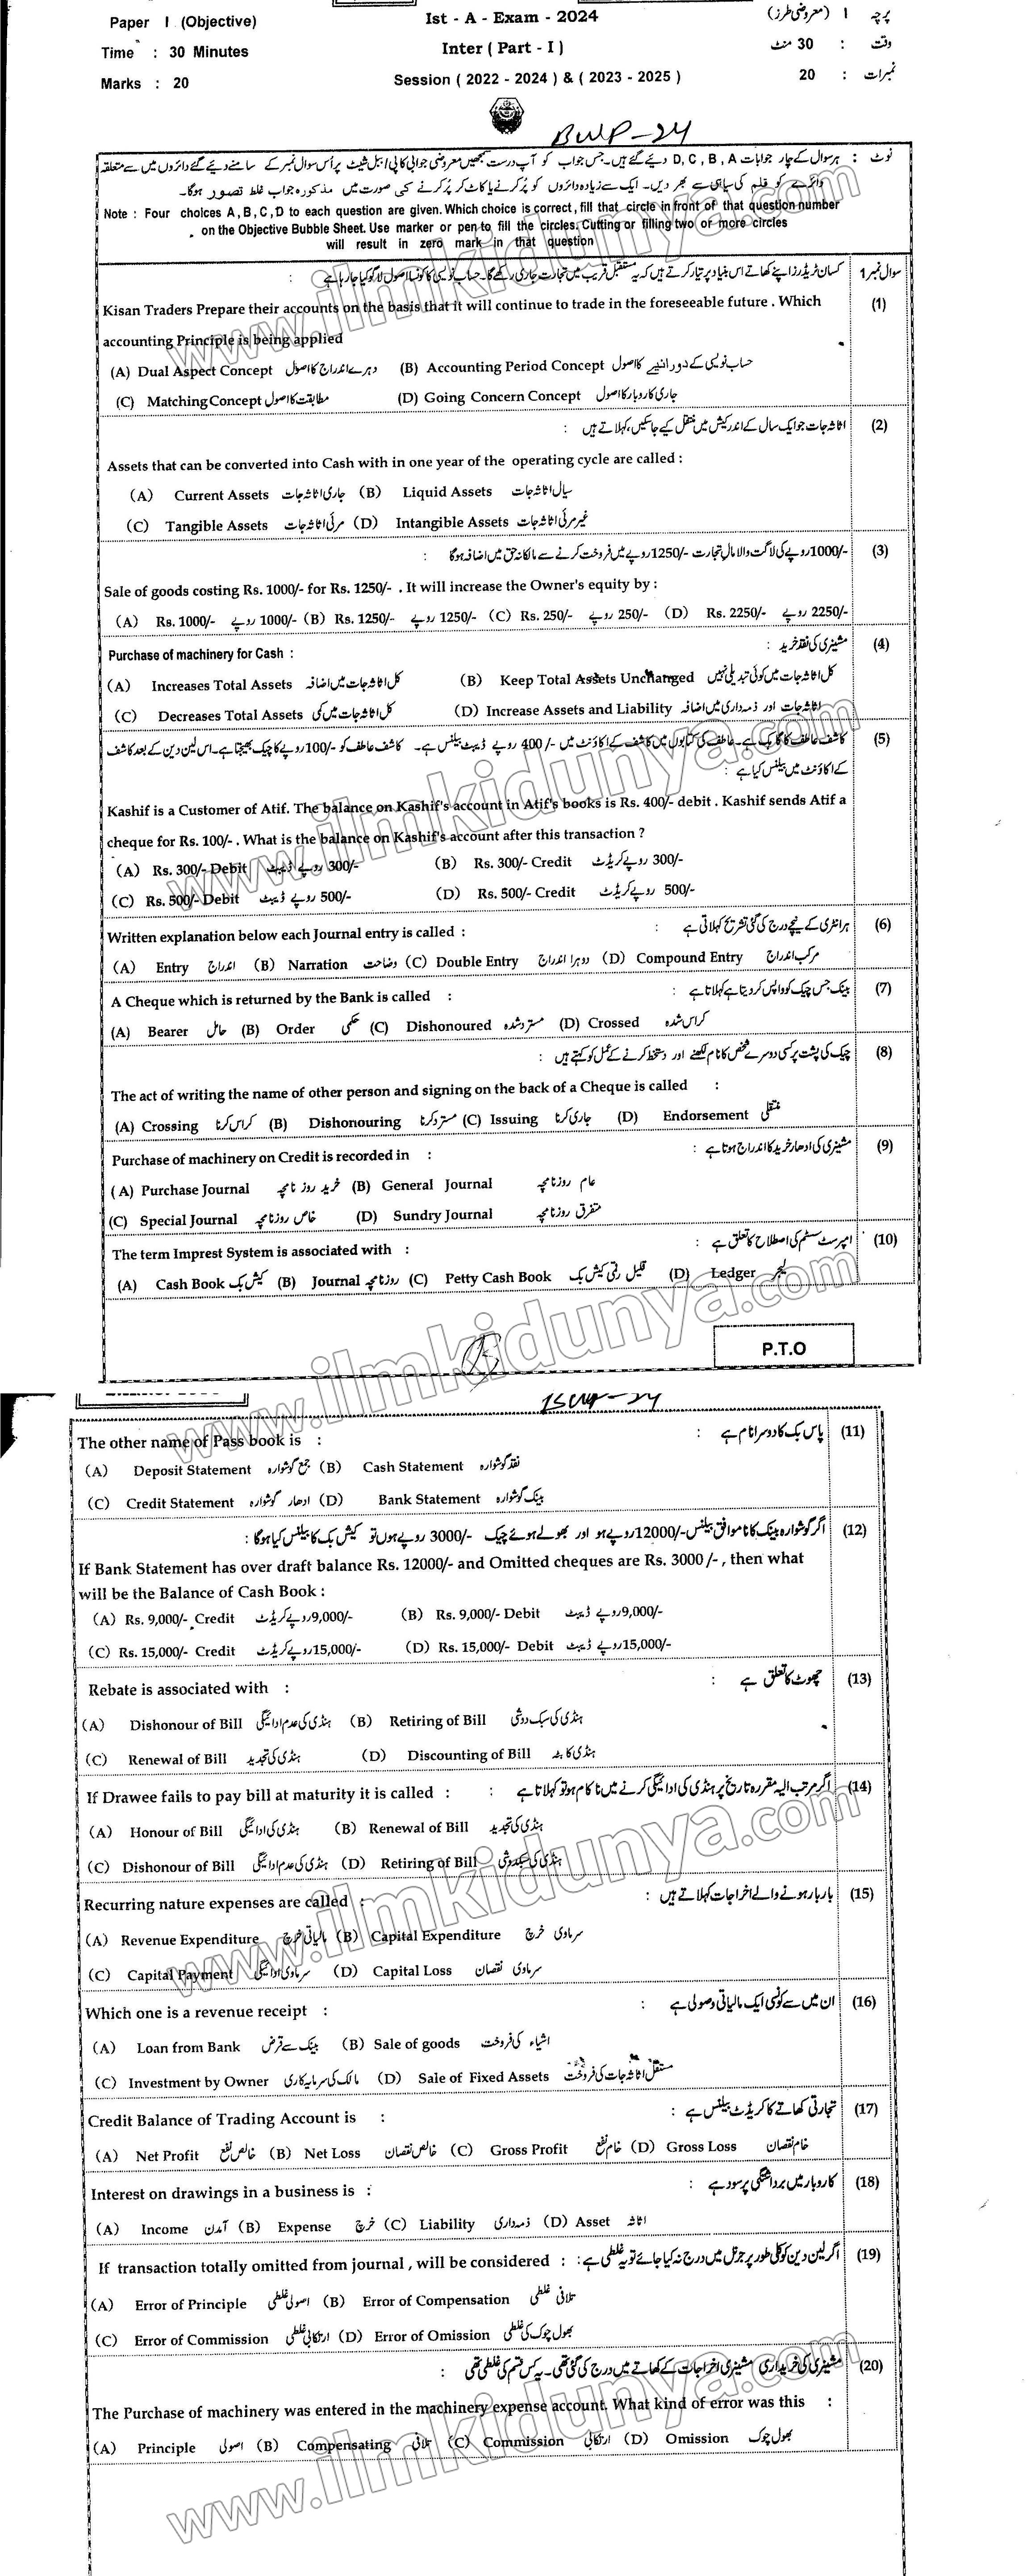 Paper I (Objective)
Ist - A - Exam - 2024
پرچہ I (معروضی طرز)
Time : 30 Minutes
Inter ( Part - I )
وقت : 30 منٹ
Marks : 20
Session ( 2022 - 2024 ) & ( 2023 - 2025 )
نمبرات : 20
BWP-24
نوٹ : ہر سوال کے چار جوابات D, C, B, A دیئے گئے ہیں۔ جس جواب کو آپ درست سمجھیں معروضی جوابی کاپی / ببل شیٹ پر اُس سوال نمبر کے سامنے دیئے گئے دائروں میں سے متعلقہ
دائرے کو قلم کی سیاہی سے بھر دیں۔ ایک سے زیادہ دائروں کو پُر کرنے یا کاٹ کر پُر کرنے کی صورت میں مذکورہ جواب غلط تصور ہوگا۔
Note : Four choices A, B, C, D to each question are given. Which choice is correct, fill that circle in front of that question number
on the Objective Bubble Sheet. Use marker or pen to fill the circles. Cutting or filling two or more circles
will result in zero mark in that question
سوال نمبر 1 کسان ٹریڈرز اپنے کھاتے اس بنیاد پر تیار کرتے ہیں کہ یہ مستقبل قریب میں تجارت جاری رکھے گا۔ حساب نویسی کا کونسا اصول لاگو کیا جا رہا ہے :
Kisan Traders Prepare their accounts on the basis that it will continue to trade in the foreseeable future . Which (1)
accounting Principle is being applied
(A) Dual Aspect Concept دہرے اندراج کا اصول (B) Accounting Period Concept حساب نویسی کے دورانیے کا اصول
(C) Matching Concept مطابقت کا اصول (D) Going Concern Concept جاری کاروبار کا اصول
(2) اثاثہ جات جو ایک سال کے اندر کیش میں منتقل کیے جا سکیں، کہلاتے ہیں :
Assets that can be converted into Cash with in one year of the operating cycle are called :
(A) Current Assets جاری اثاثہ جات (B) Liquid Assets سیال اثاثہ جات
(C) Tangible Assets مرئی اثاثہ جات (D) Intangible Assets غیر مرئی اثاثہ جات
(3) 1000/- روپے کی لاگت والا مال تجارت 1250/- روپے میں فروخت کرنے سے مالکانہ حق میں اضافہ ہوگا :
Sale of goods costing Rs. 1000/- for Rs. 1250/- . It will increase the Owner's equity by :
(A) Rs. 1000/- روپے 1000/- (B) Rs. 1250/- روپے 1250/- (C) Rs. 250/- روپے 250/- (D) Rs. 2250/- روپے 2250/-
Purchase of machinery for Cash : مشینری کی نقد خرید : (4)
(A) Increases Total Assets کل اثاثہ جات میں اضافہ (B) Keep Total Assets Unchanged کل اثاثہ جات میں کوئی تبدیلی نہیں
(C) Decreases Total Assets کل اثاثہ جات میں کمی (D) Increase Assets and Liability اثاثہ جات اور ذمہ داری میں اضافہ
(5) کاشف عاطف کا گاہک ہے۔ عاطف کی کتابوں میں کاشف کے اکاؤنٹ میں 400/- روپے ڈیبٹ بیلنس ہے۔ کاشف عاطف کو 100/- روپے کا چیک بھیجتا ہے۔ اس لین دین کے بعد کاشف
کے اکاؤنٹ میں بیلنس کیا ہے :
Kashif is a Customer of Atif. The balance on Kashif's account in Atif's books is Rs. 400/- debit . Kashif sends Atif a
cheque for Rs. 100/- . What is the balance on Kashif's account after this transaction ?
(A) Rs. 300/- Debit روپے ڈیبٹ 300/- (B) Rs. 300/- Credit روپے کریڈٹ 300/-
(C) Rs. 500/- Debit روپے ڈیبٹ 500/- (D) Rs. 500/- Credit روپے کریڈٹ 500/-
Written explanation below each Journal entry is called : ہر انٹری کے نیچے درج کی گئی تشریح کہلاتی ہے : (6)
(A) Entry اندراج (B) Narration وضاحت (C) Double Entry دوہرا اندراج (D) Compound Entry مرکب اندراج
A Cheque which is returned by the Bank is called : بینک جس چیک کو واپس کر دیتا ہے کہلاتا ہے : (7)
(A) Bearer حامل (B) Order حکمی (C) Dishonoured مسترد شدہ (D) Crossed کراس شدہ
(8) چیک کی پشت پر کسی دوسرے شخص کا نام لکھنے اور دستخط کرنے کے عمل کو کہتے ہیں :
The act of writing the name of other person and signing on the back of a Cheque is called :
(A) Crossing کراس کرنا (B) Dishonouring مسترد کرنا (C) Issuing جاری کرنا (D) Endorsement منتقلی
Purchase of machinery on Credit is recorded in : مشینری کی ادھار خرید کا اندراج ہوتا ہے : (9)
(A) Purchase Journal خرید روزنامچہ (B) General Journal عام روزنامچہ
(C) Special Journal خاص روزنامچہ (D) Sundry Journal متفرق روزنامچہ
The term Imprest System is associated with : امپرسٹ سسٹم کی اصطلاح کا تعلق ہے : (10)
(A) Cash Book کیش بک (B) Journal روزنامچہ (C) Petty Cash Book قلیل رقمی کیش بک (D) Ledger لیجر
P.T.O
BWP-24
The other name of Pass book is : پاس بک کا دوسرا نام ہے : (11)
(A) Deposit Statement جمع گوشوارہ (B) Cash Statement نقد گوشوارہ
(C) Credit Statement ادھار گوشوارہ (D) Bank Statement بینک گوشوارہ
(12) اگر گوشوارہ بینک کا ناموافق بیلنس 12000/- روپے ہو اور بھولے ہوئے چیک 3000/- روپے ہوں تو کیش بک کا بیلنس کیا ہوگا :
If Bank Statement has over draft balance Rs. 12000/- and Omitted cheques are Rs. 3000 /- , then what
will be the Balance of Cash Book :
(A) Rs. 9,000/- Credit روپے کریڈٹ 9,000/- (B) Rs. 9,000/- Debit روپے ڈیبٹ 9,000/-
(C) Rs. 15,000/- Credit روپے کریڈٹ 15,000/- (D) Rs. 15,000/- Debit روپے ڈیبٹ 15,000/-
Rebate is associated with : چھوٹ کا تعلق ہے : (13)
(A) Dishonour of Bill ہنڈی کی عدم ادائیگی (B) Retiring of Bill ہنڈی کی سبکدوشی
(C) Renewal of Bill ہنڈی کی تجدید (D) Discounting of Bill ہنڈی کا بٹہ
If Drawee fails to pay bill at maturity it is called : اگر مرتب الیہ مقررہ تاریخ پر ہنڈی کی ادائیگی کرنے میں ناکام ہو تو کہلاتا ہے : (14)
(A) Honour of Bill ہنڈی کی ادائیگی (B) Renewal of Bill ہنڈی کی تجدید
(C) Dishonour of Bill ہنڈی کی عدم ادائیگی (D) Retiring of Bill ہنڈی کی سبکدوشی
Recurring nature expenses are called : بار بار ہونے والے اخراجات کہلاتے ہیں : (15)
(A) Revenue Expenditure مالیاتی خرچ (B) Capital Expenditure سرمادی خرچ
(C) Capital Payment سرمادی ادائیگی (D) Capital Loss سرمادی نقصان
Which one is a revenue receipt : ان میں سے کونسی ایک مالیاتی وصولی ہے : (16)
(A) Loan from Bank بینک سے قرض (B) Sale of goods اشیاء کی فروخت
(C) Investment by Owner مالک کی سرمایہ کاری (D) Sale of Fixed Assets مستقل اثاثہ جات کی فروخت
Credit Balance of Trading Account is : تجارتی کھاتے کا کریڈٹ بیلنس ہے : (17)
(A) Net Profit خالص نفع (B) Net Loss خالص نقصان (C) Gross Profit خام نفع (D) Gross Loss خام نقصان
Interest on drawings in a business is : کاروبار میں برداشتگی پر سود ہے : (18)
(A) Income آمدن (B) Expense خرچ (C) Liability ذمہ داری (D) Asset اثاثہ
If transaction totally omitted from journal , will be considered : اگر لین دین کو کلی طور پر جرنل میں درج نہ کیا جائے تو یہ غلطی ہے : (19)
(A) Error of Principle اصولی غلطی (B) Error of Compensation تلافی غلطی
(C) Error of Commission ارتکابی غلطی (D) Error of Omission بھول چوک کی غلطی
(20) مشینری کی خریداری مشینری اخراجات کے کھاتے میں درج کی گئی تھی۔ یہ کس قسم کی غلطی تھی :
The Purchase of machinery was entered in the machinery expense account. What kind of error was this :
(A) Principle اصولی (B) Compensating تلافی (C) Commission ارتکابی (D) Omission بھول چوک
www.ilmkidunya.com
www.ilmkidunya.com
www.ilmkidunya.com
www.ilmkidunya.com
www.ilmkidunya.com